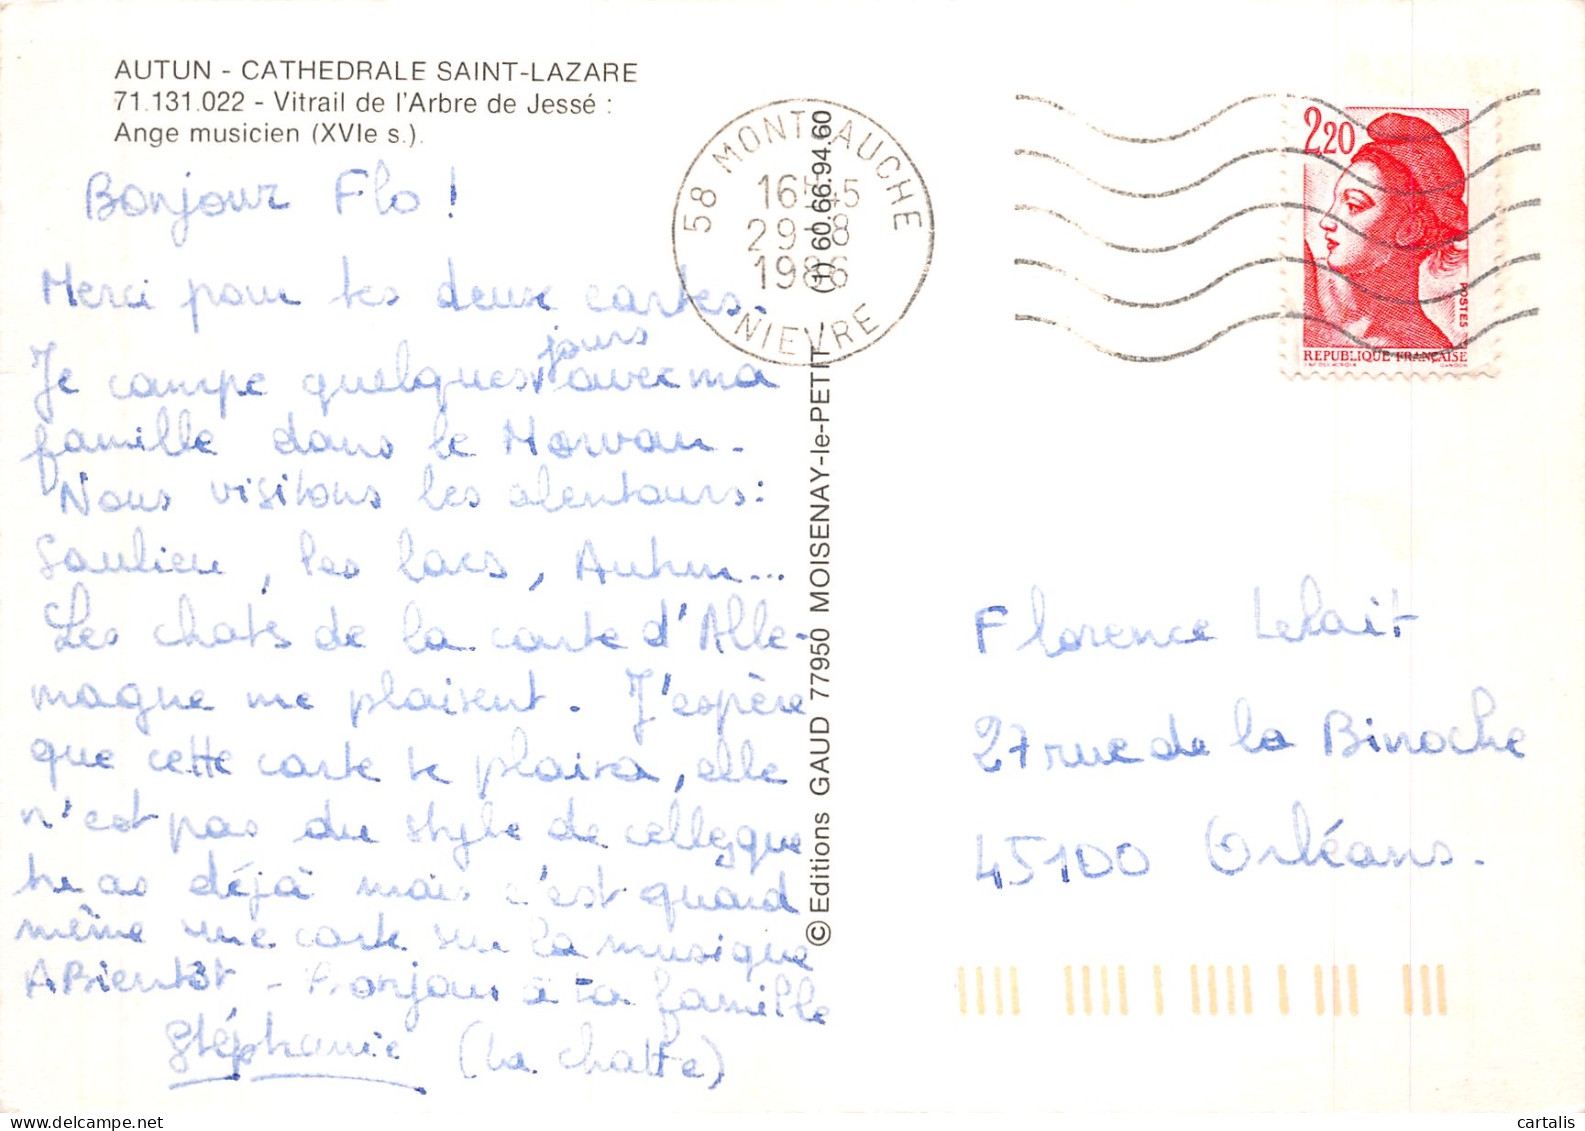 AUTUN - CATHEDRALE SAINT-LAZARE
71.131.022 - Vitrail de l'Arbre de Jessé :
Ange musicien (XVIe s.).
Bonjour Flo !
Merci pour tes deux cartes.
Je campe quelques jours avec ma
famille dans le Morvan.
Nous visitons les alentours :
Saulieu, les lacs, Autun...
Les chats de la carte d'Alle-
magne me plaisent. J'espère
que cette carte te plaira, elle
n'est pas du style de celles que
tu as déjà mais c'est quand
même une carte sur la musique
A Bientôt - Bonjour à ta famille
Stéphanie (La chatte)
© Editions GAUD 77950 MOISENAY-le-PETIT (1) 60.66.94.60
58 MONTSAUCHE
16H45
29-8
1986
NIEVRE
2,20
POSTES
REPUBLIQUE FRANÇAISE
GANDON
Florence Lelait
27 rue de la Binoche
45100 Orléans.
cartalis